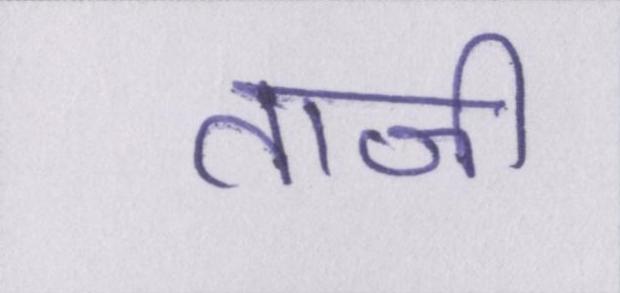 ताजी